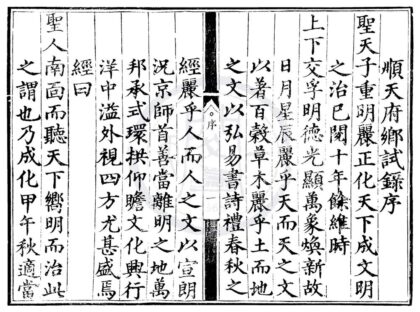 順天府鄉試錄序
聖天子重明麗正化天下成文明
之治已閱十年餘維時
上下交孚明德光顯萬象煥新故
日月星辰麗乎天而天之文
以著百穀草木麗乎土而地
之文以弘易書詩禮春秋之
序
一
經麗乎人而人之文以宣朗
況京師首善當離明之地萬
邦承式環拱仰瞻文化興行
洋中溢外視四方尤甚盛焉
經曰
聖人南面而聽天下嚮明而治此
之謂也乃成化甲午秋適當